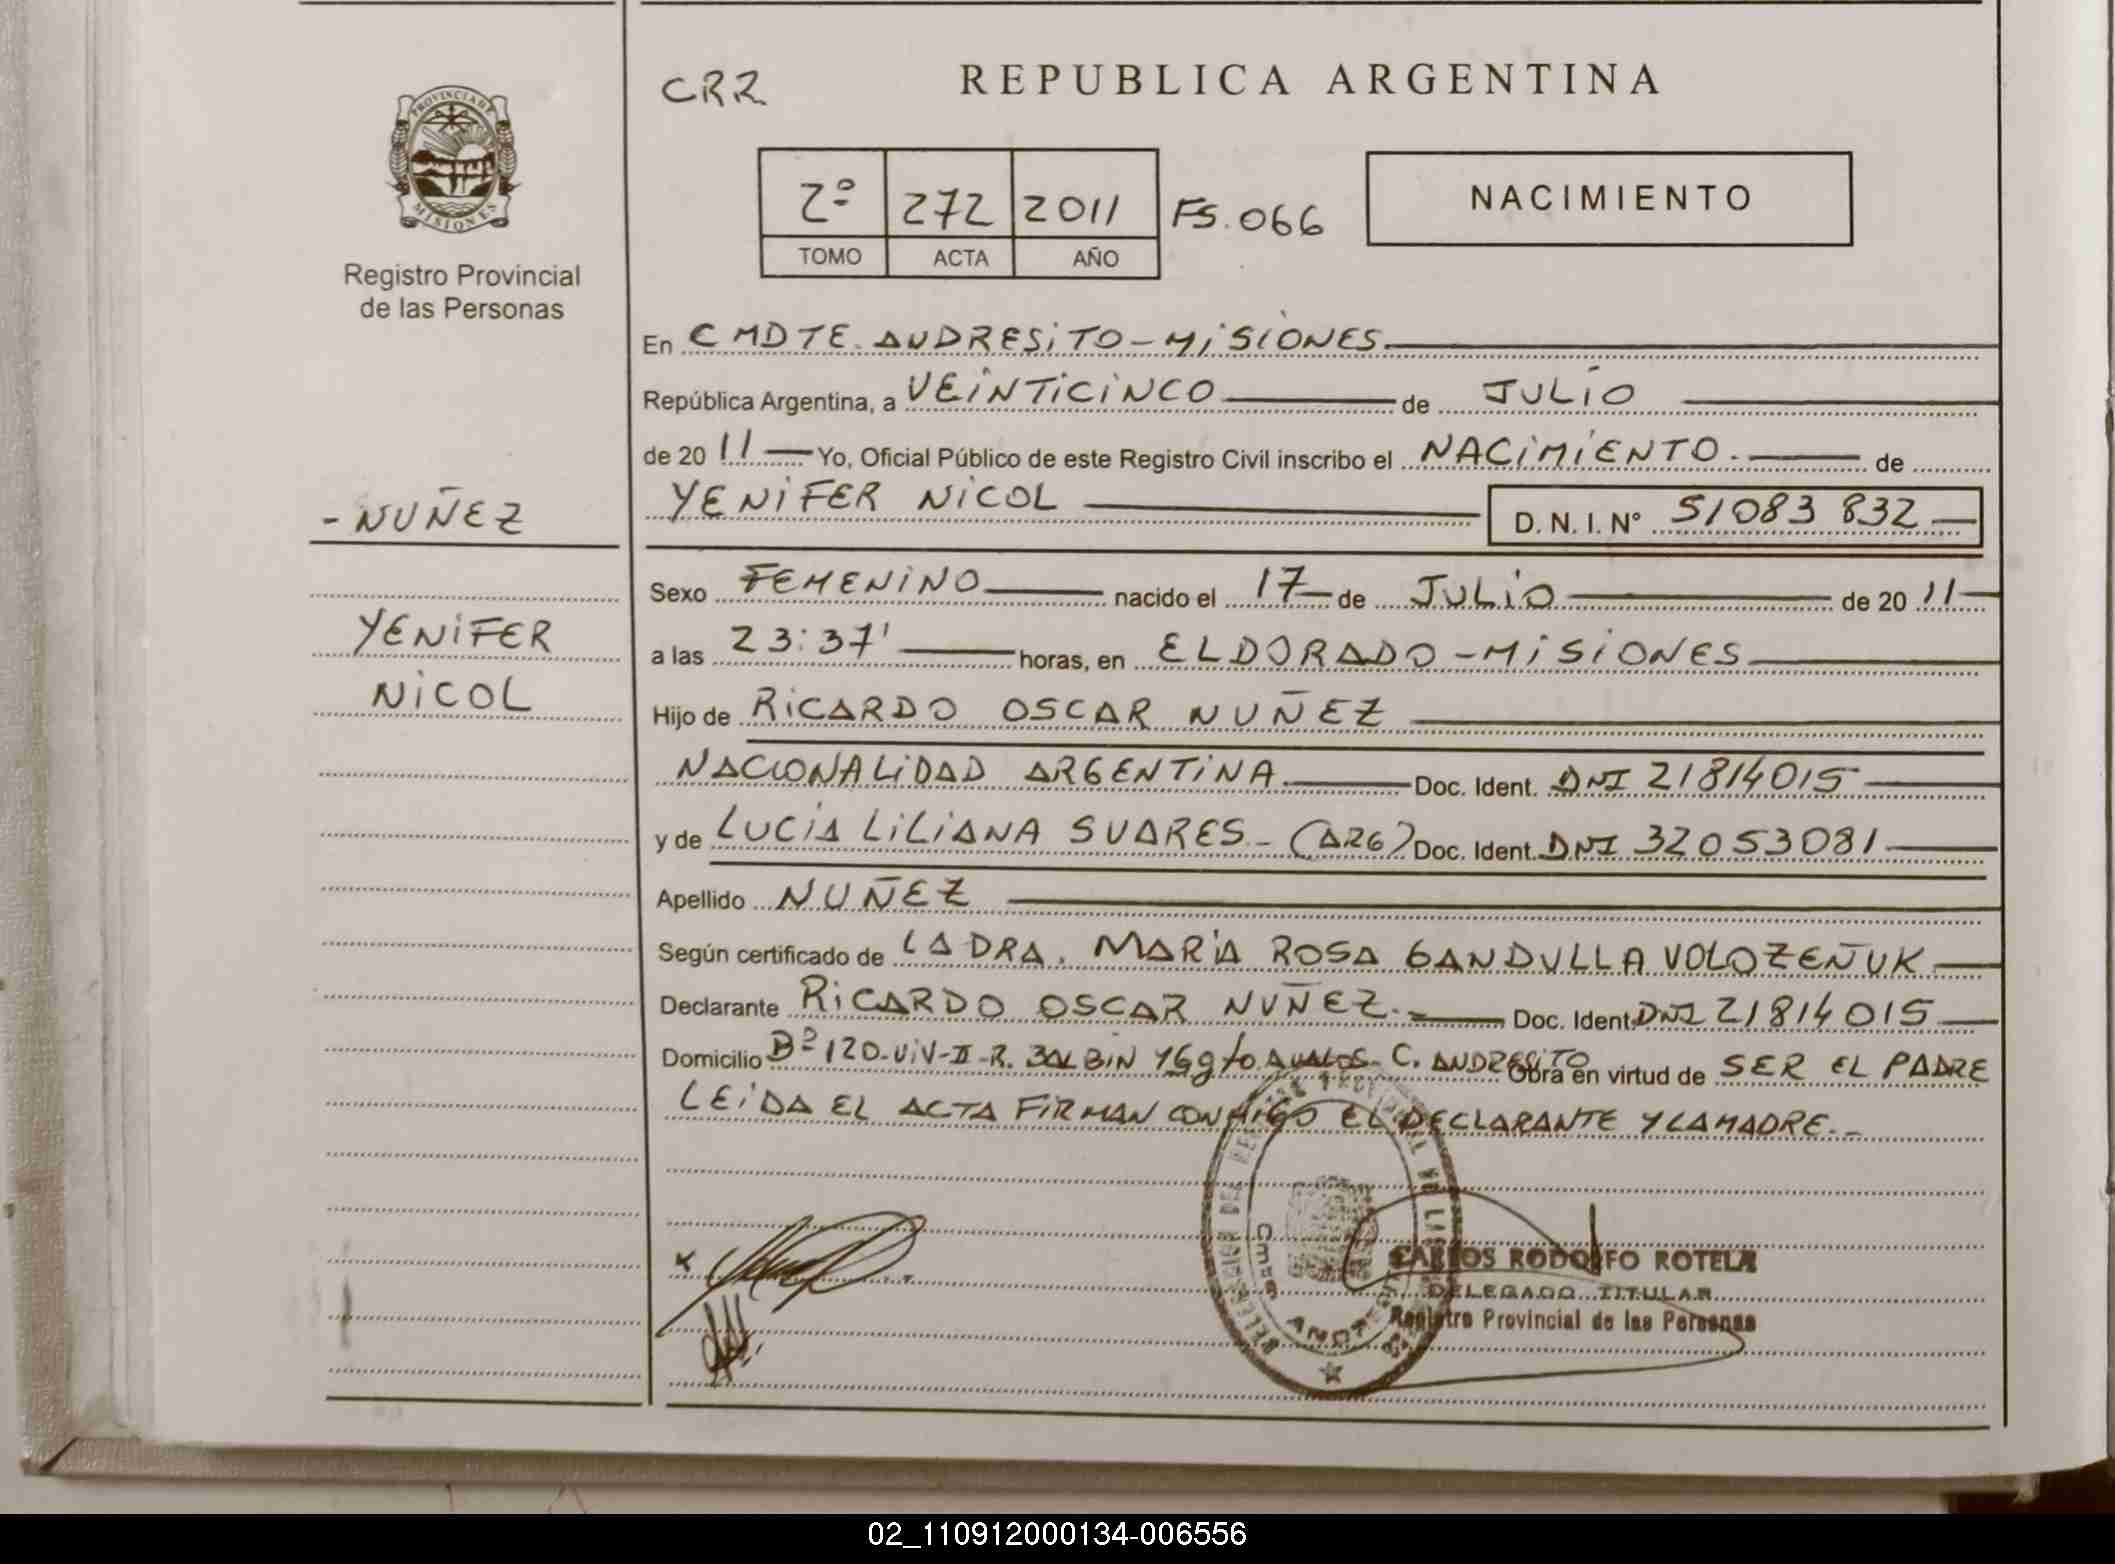 CRR
REPUBLICA ARGENTINA
PROVINCIA DE
MISIONES
Registro Provincial
de las Personas
2º 272 2011 FS. 066
TOMO ACTA AÑO
NACIMIENTO
En CMDTE. ANDRESITO - MISIONES
República Argentina, a VEINTICINCO de JULIO
de 2011 Yo, Oficial Público de este Registro Civil inscribo el NACIMIENTO. de
YENIFER NICOL D. N. I. Nº 51083 832
- NUÑEZ
YENIFER
NICOL
Sexo FEMENINO nacido el 17 de JULIO de 2011
a las 23:37' horas, en ELDORADO - MISIONES
Hijo de RICARDO OSCAR NUÑEZ
NACIONALIDAD ARGENTINA Doc. Ident. DNI 21814015
y de LUCIA LILIANA SUARES - (ARG) Doc. Ident. DNI 32053081
Apellido NUÑEZ
Según certificado de LA DRA. MARIA ROSA GANDULLA VOLOZEÑUK
Declarante RICARDO OSCAR NUÑEZ. Doc. Ident. DNI 21814015
Domicilio Bº 120-VIV-II-R. BALBIN C. ANDRESITO Obra en virtud de SER EL PADRE
LEIDA EL ACTA FIRMAN CONMIGO EL DECLARANTE Y LA MADRE.-
CARLOS RODOLFO ROTELA
DELEGADO TITULAR
Registro Provincial de las Personas
02_110912000134-006556